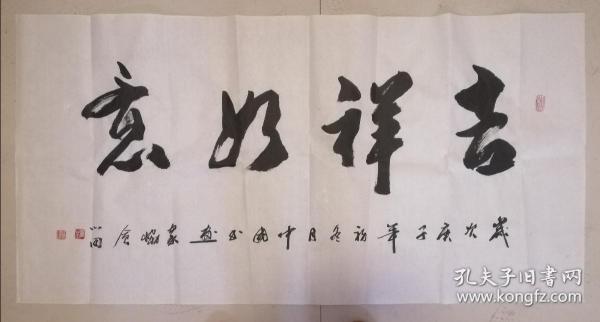 吉祥如意
岁次庚子年初冬月中国书画家协会
孔夫子旧书网
www.kongfz.com